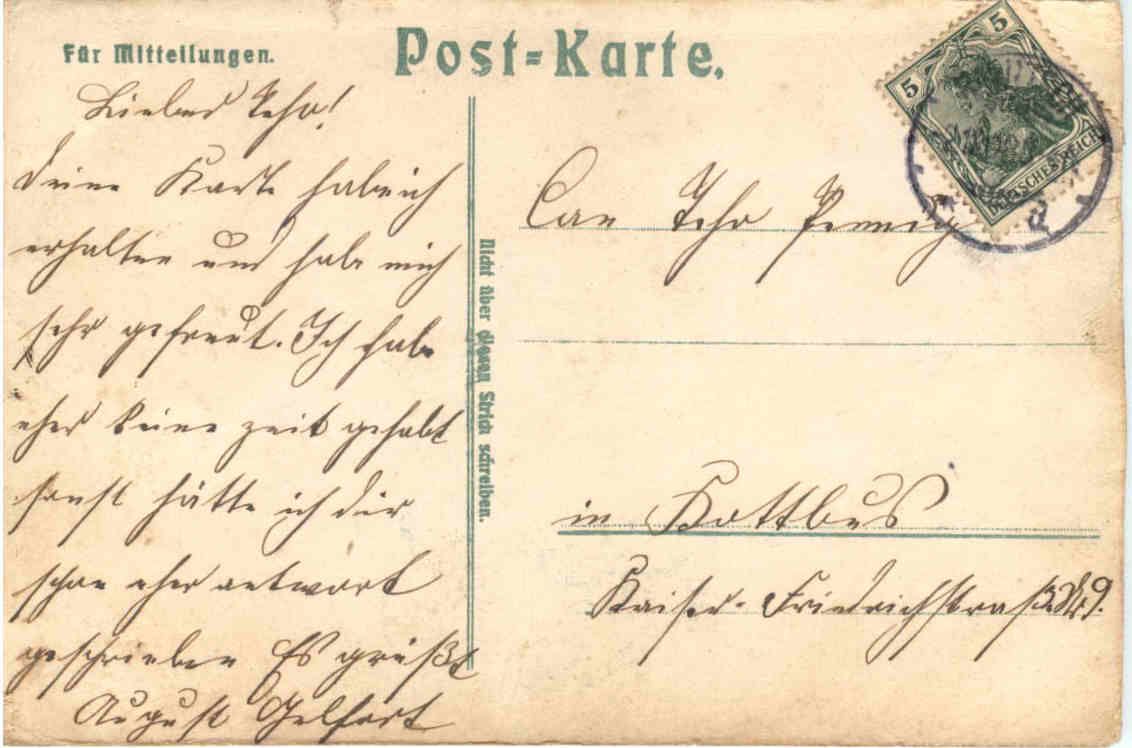 Für Mitteilungen.
Post-Karte.
5
5
DEUTSCHES REICH
Lieber
deine Karte habe ich
erhalten und habe mich
sehr gefreut. Ich habe
eher keine zeit gehabt
sonst hätte ich dir
schon eher antwort
geschrieben Es grüßt
August Gelfort
Nicht über diesen Strich schreiben.
in Kottbus
Kaiser-Friedrichstraße